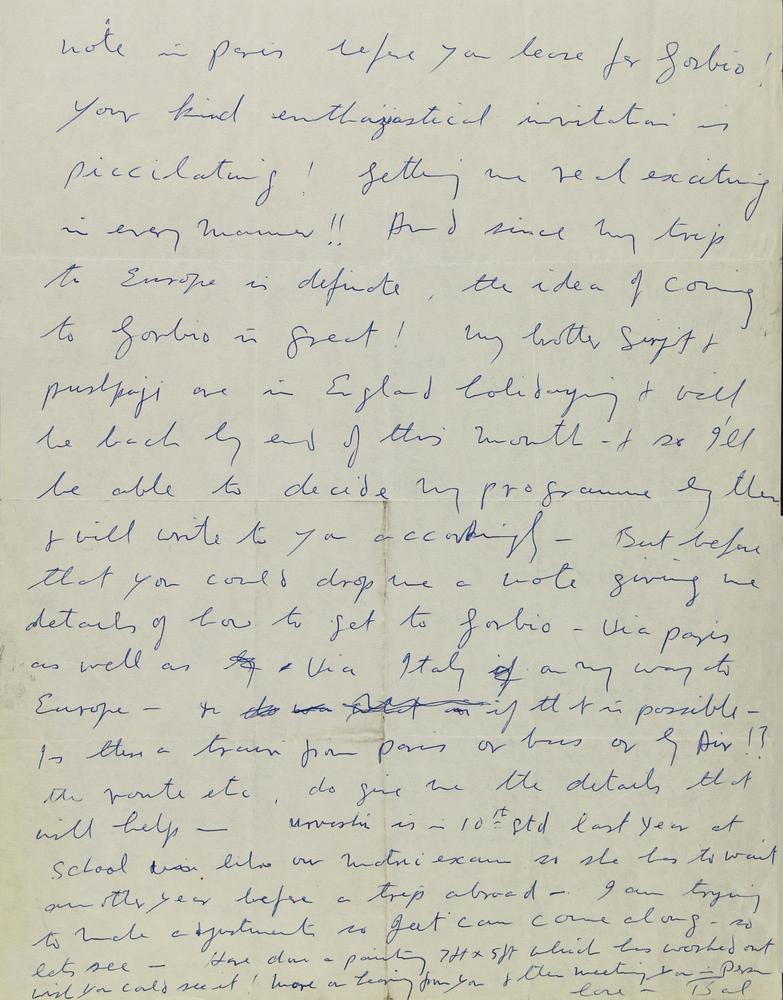 note in paris before you leave for Gorbio!
Your kind enthusiastical invitation is
piccilating! Getting me real exciting
in every manner!! And since my trip
to Europe is definite, the idea of coming
to Gorbio is great! My brother &
pushpaji are in England holidaying & will
be back by end of this month - & so I'll
be able to decide my programme by then
& will write to you accordingly - But before
that you could drop me a note giving me
details of how to get to Gorbio - via paris
as well as via Italy if on my way to
Europe - if tht is possible -
Is there a train from paris or bus or by Air!?
the route etc, do give me the details that
will help - Urvashi is in 10th Std last year at
School like our matric exam so she has to wait
another year before a trip abroad - I am trying
to make adjustments so Jeet can come along - so
lets see - Have done a painting 7ft x 5ft which has worked out
wish you could see it! more on hearing from you & then meeting you in person
love - Bal